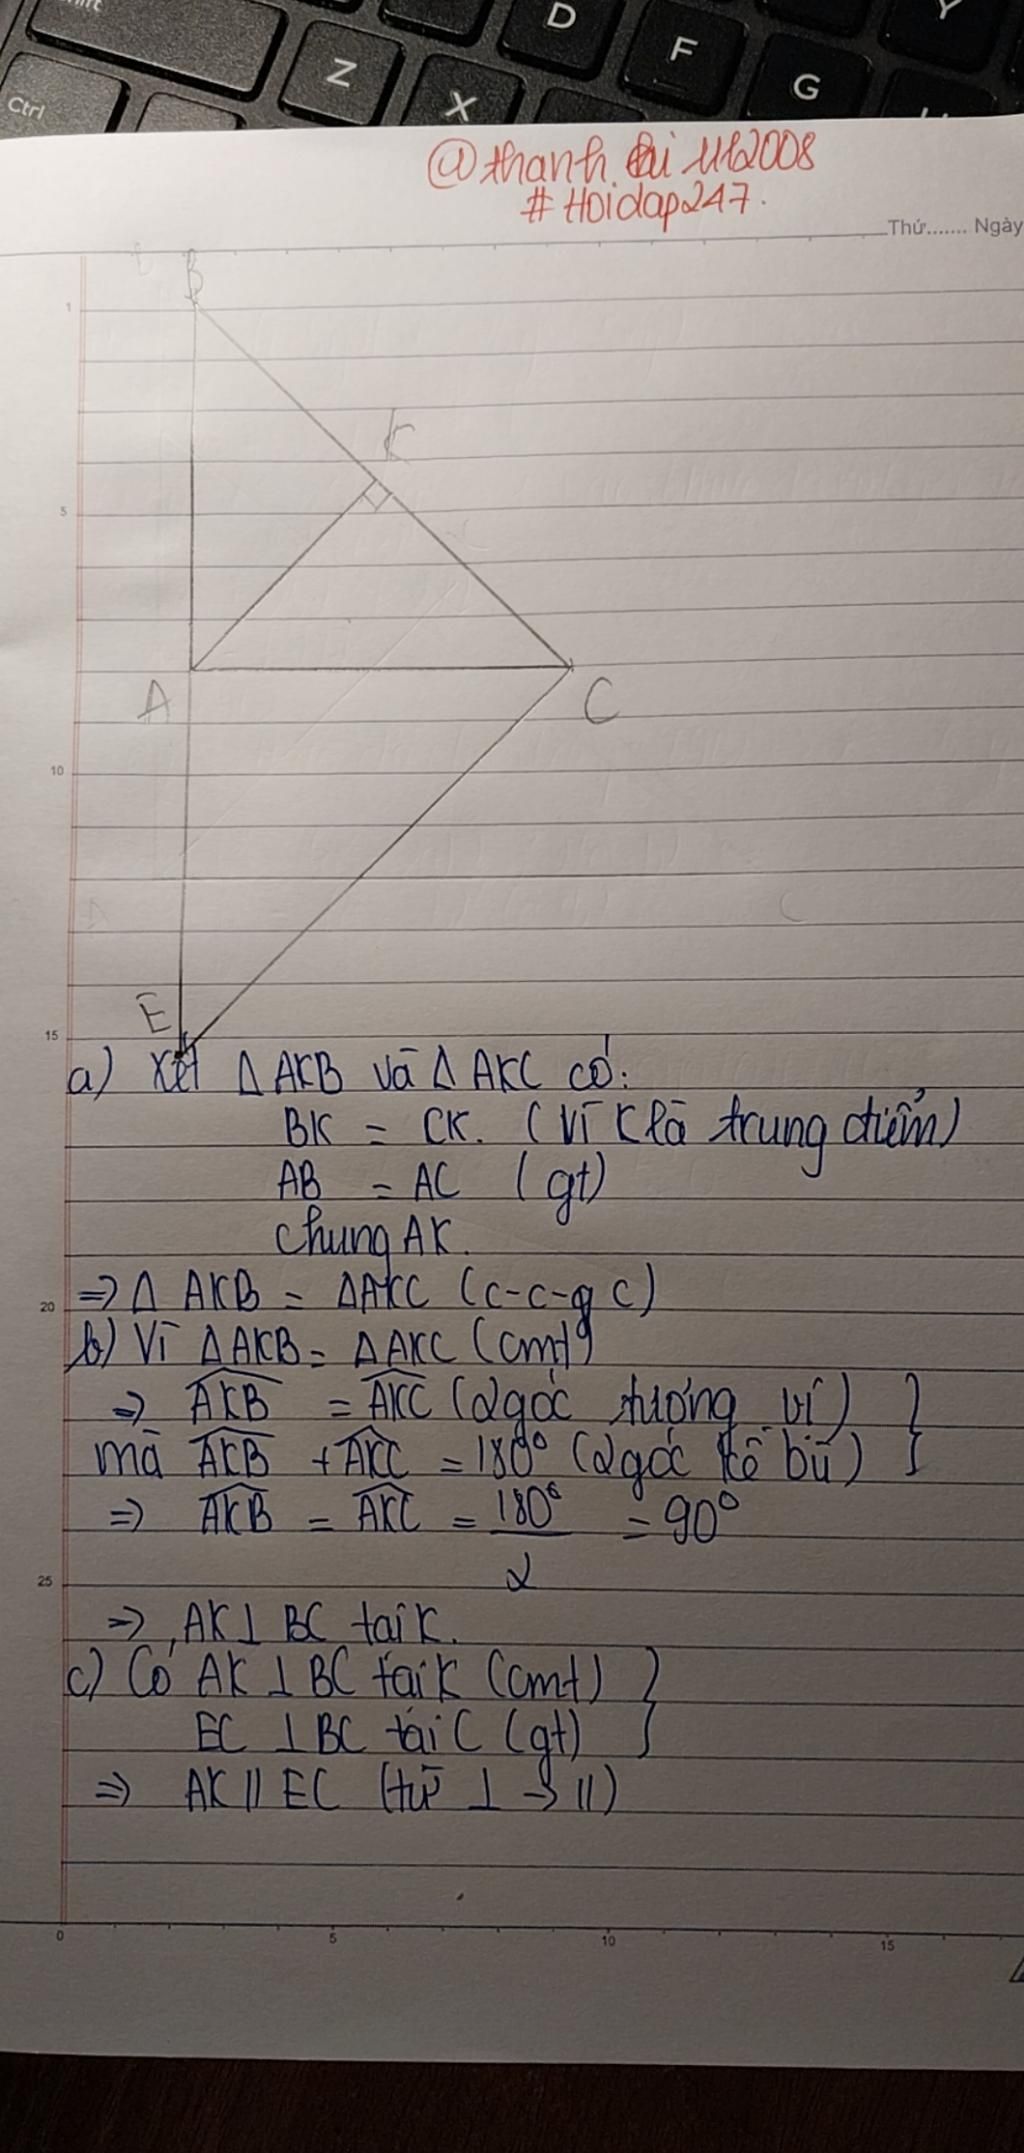 Ctrl
Z
X
D
F
G
Y
#Hoidap247.
Thứ....... Ngày
B
K
A
C
E
1
5
10
15
20
25
a) Xét Δ AKB và Δ AKC có:
BK = CK. (Vì K là trung điểm)
AB = AC (gt)
chung AK.
=> Δ AKB = ΔAKC (c-c-c)
b) Vì ΔAKB = ΔAKC (cmt)
=> AKB = AKC (2 góc tương ví)
mà AKB + AKC = 180° (2 góc kề bù)
=> AKB = AKC = 180°/2 = 90°
=> AK ⊥ BC tại K.
c) Có AK ⊥ BC tại K (cmt)
EC ⊥ BC tại C (gt)
=> AK // EC (từ ⊥ -> //)
0 5 10 15